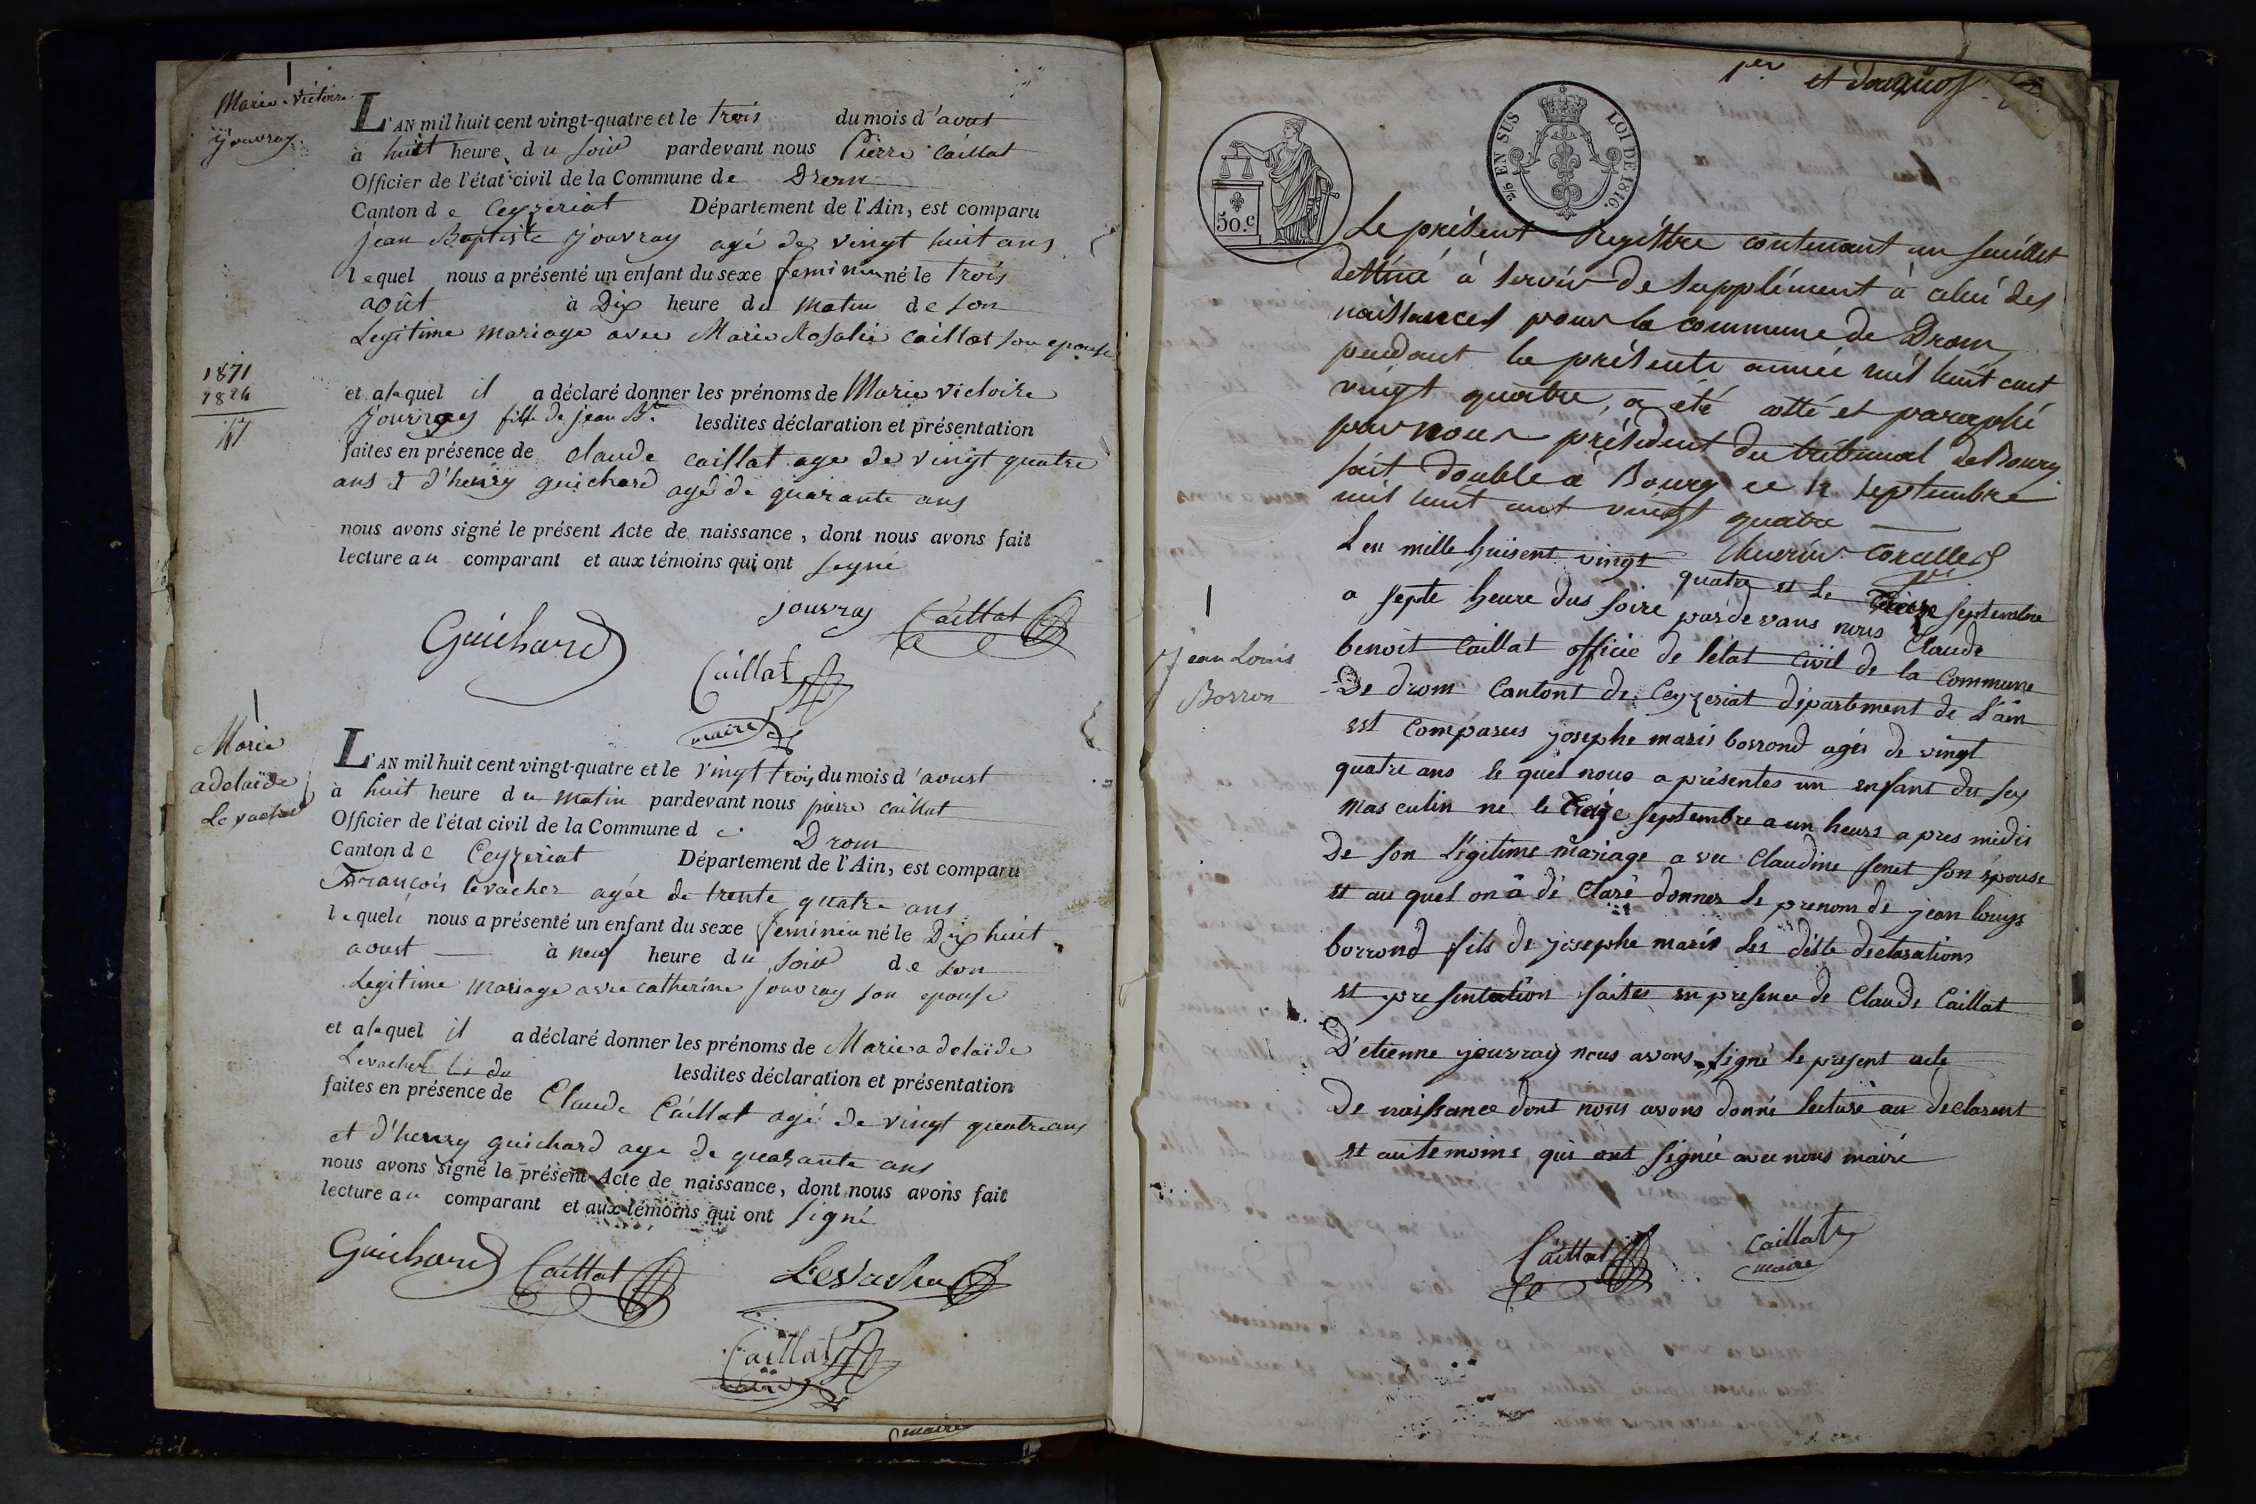 Marie Victoire
Jouvray
L'AN mil huit cent vingt-quatre et le trois du mois d'aout
à huit heure du soir pardevant nous Pierre Caillat
Officier de l'état civil de la Commune de Drom
Canton de Ceyzeriat Département de l'Ain, est comparu
jean Baptiste Jouvray agé de vingt huit ans
lequel nous a présenté un enfant du sexe feminin né le trois
août à Dix heure du matin de son
Legitime mariage avec Marie Rosalie Caillat son epouse
1871
1824
47
et alaquel il a déclaré donner les prénoms de Marie Victoire
Jouvray fille de jean Bte lesdites déclaration et présentation
faites en présence de Claude Caillat age de vingt quatre
ans & d'henry guichard agé de quarante ans
nous avons signé le présent Acte de naissance, dont nous avons fait
lecture au comparant et aux témoins qui ont signé
Jouvray Caillat
Guichard
Caillat
maire
Marie
adelaïde
Levacher
L'AN mil huit cent vingt-quatre et le vingt trois du mois d'aoust
à huit heure du matin pardevant nous pierre caillat
Officier de l'état civil de la Commune de Drom
Canton de Ceyzeriat Département de l'Ain, est comparu
François levacher agée de trente quatre ans
lequel nous a présenté un enfant du sexe feminin né le Dix huit
aoust à neuf heure du soir de son
Legitime mariage avec catherine jouvray son epouse
et alaquel il a déclaré donner les prénoms de Marie adelaïde
Levacher lesdites déclaration et présentation
faites en présence de Claude Caillat agé de vingt quatre ans
et d'henry guichard age de quarante ans
nous avons signé le présent Acte de naissance, dont nous avons fait
lecture au comparant et aux témoins qui ont signé
Guichard Caillat Levacher
Caillat
maire
maire
1er et
50.c
2/5 EN SUS LOI DE 1816.
Le présent Registre contenant un feuillet
destiné à servir de supplément à celui des
naissances pour la commune de Drom
pendant la présente année mil huit cent
vingt quatre, a été cotté et paraphé
par nous président du tribunal de Bourg
fait double à Bourg ce 12 septembre
mil huit cent vingt quatre
L'en mille huisent vingt quatre et le Treize septembre
a septe heure dus soire pardevans nous Claude
benoit Caillat officié de l'état civil de la Commune
De drom Cantont de Ceyzeriat département de L'ain
est Comparus josephe maris borrond agés de vingt
Jean Louis
Borron
quatre ans le quel nous a présentes un enfant du sex
masculin né le Treize septembre a un heurs apres midis
De son Légitime mariage avec Claudine fenet son épouse
et au quel on â dé Claré donner le prenom de jean louys
borrond fils de josephe maris les déste declarations
et presentation faites en presence de Claude Caillat
D'etienne jouvray nous avons signé le present acte
De naissance dont nous avons donné lecture au declarent
et au temoins qui ont signée avec nous mairé
Caillat Caillat
maire